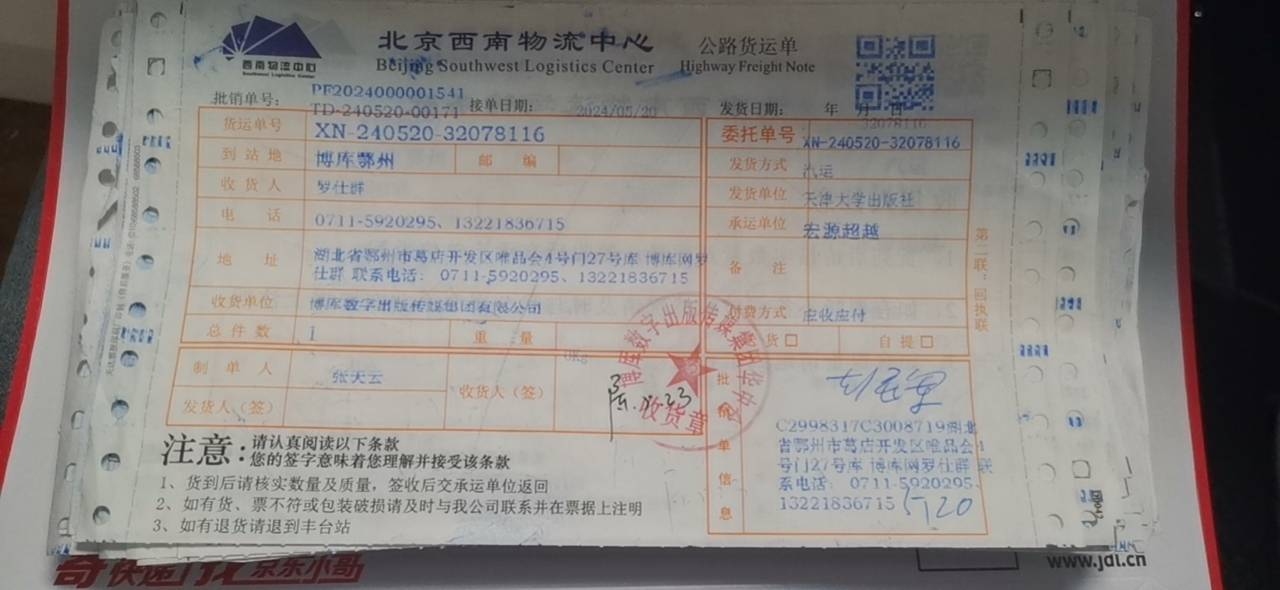 西南物流中心
Southwest Logistics Center
北京西南物流中心
Beijing Southwest Logistics Center
公路货运单
Highway Freight Note
批销单号: PF2024000001541
TD-240520-00171 接单日期: 2024/05/20 发货日期: 年 月 日
32078116
货运单号 XN-240520-32078116
委托单号 XN-240520-32078116
到站地 博库鄂州 邮编
发货方式 汽运
收货人 罗仕群
发货单位 天津大学出版社
电话 0711-5920295、13221836715
承运单位 宏源超越
地址 湖北省鄂州市葛店开发区唯品会4号门27号库 博库网罗
仕群 联系电话: 0711-5920295、13221836715
备注
收货单位 博库数字出版传媒集团有限公司
付费方式 应收应付
总件数 1 重量 0Kg
货□ 自提□
制单人 张天云
收货人(签)
发货人(签)
博库数字出版传媒集团华中
收货章
批价单信息
C2998317C3008719湖北
省鄂州市葛店开发区唯品会4
号门27号库 博库网罗仕群 联
系电话: 0711-5920295、
13221836715
第二联:回执联
注意:请认真阅读以下条款
您的签字意味着您理解并接受该条款
1、货到后请核实数量及质量,签收后交承运单位返回
2、如有货、票不符或包装破损请及时与我公司联系并在票据上注明
3、如有退货请退到丰台站
京东小哥
www.jdl.cn